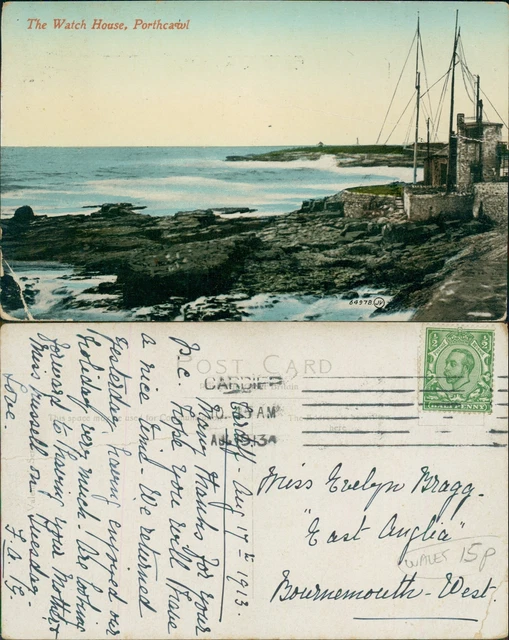 The Watch House, Porthcawl
64978. JV
POST CARD
CARDIFF
AM
AU 19 13
Cardiff. Aug 17th 1913.
Many thanks for your
p.c. Hope you will have
a nice time. We returned
yesterday having enjoyed our
holiday very much. Are looking
forward to having your Mother &
Miss Russell on Tuesday.
Love.
HALF PENNY
Miss Evelyn Bragg.
"East Anglia"
Bournemouth-West.
WALES 15p